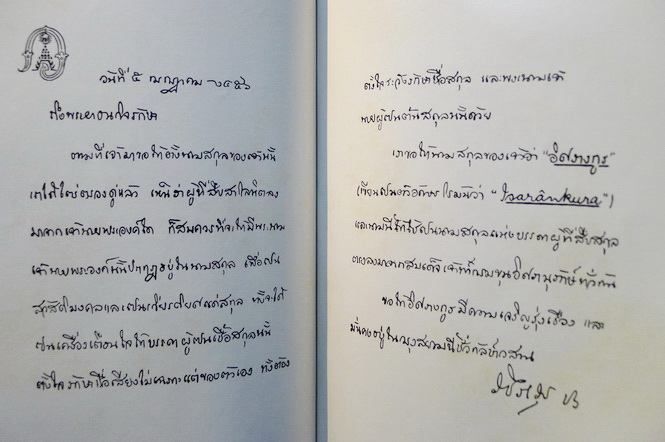 วันที่ ๕
ถึงพระยาอนุรักษ์
ตามที่เจ้ามาขอให้ตั้งนามสกุลของเจ้านั้น
เราได้ใคร่ครวญดูแล้ว เห็นว่าผู้ที่สืบสายโลหิตลง
มาจากเจ้านายพระองค์ใด ก็สมควรที่จะให้มีพระนาม
เจ้านายพระองค์นั้นปรากฏอยู่ในนามสกุล เพื่อเป็น
สวัสดิมงคลและเป็นเกียรติยศแก่สกุล ทั้งจะได้
เป็นเครื่องเตือนใจให้บรรดาผู้เป็นเชื้อสกุลนั้น
ตั้งใจรักษาชื่อเสียงไม่เฉพาะแต่ของตัวเอง ทั้งต้อง
ตั้งใจระวังรักษาชื่อสกุล และพระนามเจ้า
นายผู้เป็นต้นสกุลนั้นด้วย
เราขอให้นามสกุลของเจ้าว่า "อิศรางกูร"
(เขียนเป็นตัวอักษรโรมันว่า "Isarânkura")
และนามนี้ให้ใช้เป็นนามสกุลแห่งบรรดาผู้ที่สืบสกุล
ตรงลงมาจากสมเด็จเจ้าฟ้ากรมขุนอิศรานุรักษ์ทั่วกัน
ขอให้อิศรางกูรมีความเจริญรุ่งเรือง และ
มั่นคงอยู่ในกรุงสยามนี้ชั่วกัลปาวสาน